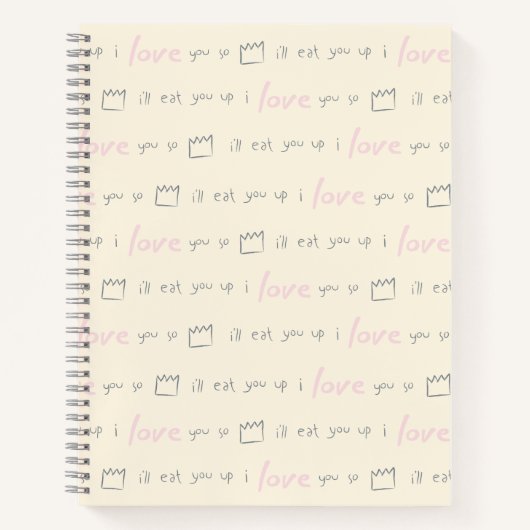 up i love you so i'll eat you up i love
so i'll eat you up i love you so i'll eat
love you so i'll eat you up i love you so
you so i'll eat you up i love you so
up i love you so i'll eat you up i love
so i'll eat you up i love you so i'll eat
love you so i'll eat you up i love you so
you so i'll eat you up i love you so
up i love you so i'll eat you up i love
so i'll eat you up i love you so i'll eat